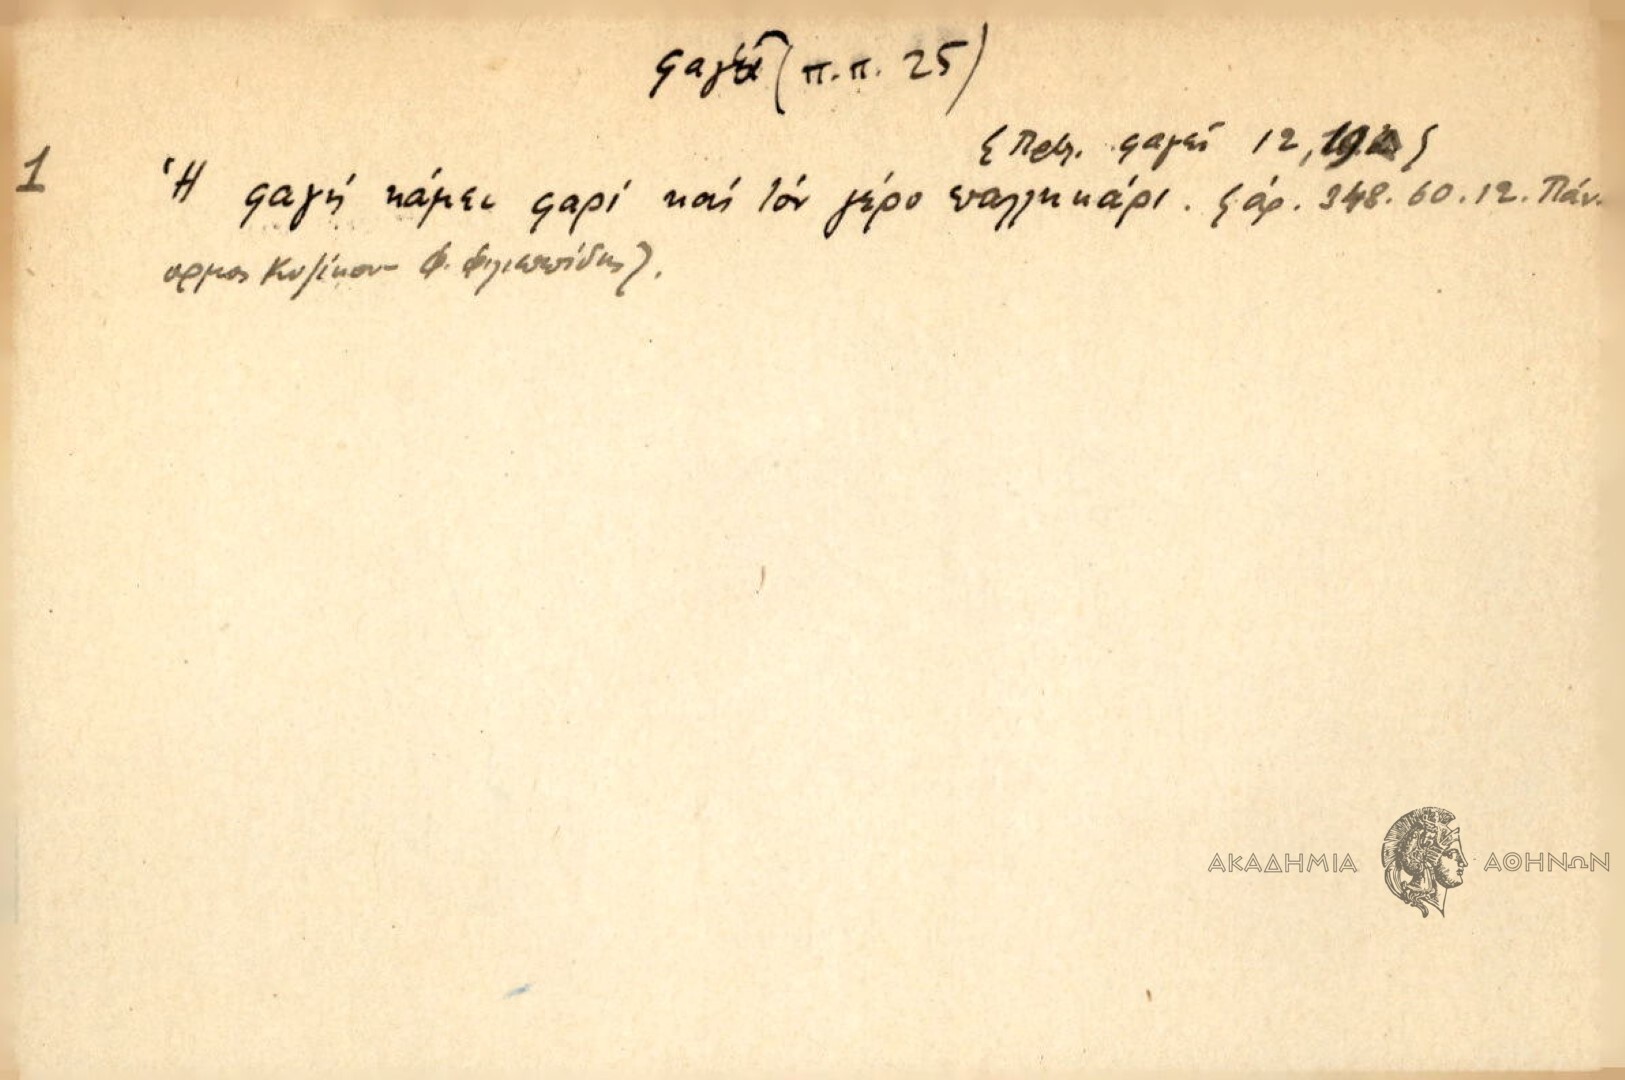 φαγεῖ (π.π. 25)
{Πρβλ. φαγεῖ 12,
1 Ἡ φαγή κάμει φαρί καί τόν γέρο παλληκάρι. {ἀρ. 348. 60. 12. Πάν-
ορμος Κυζίκου - Φ. Φιλιππίδης}.
ΑΚΑΔΗΜΙΑ ΑΘΗΝΩΝ